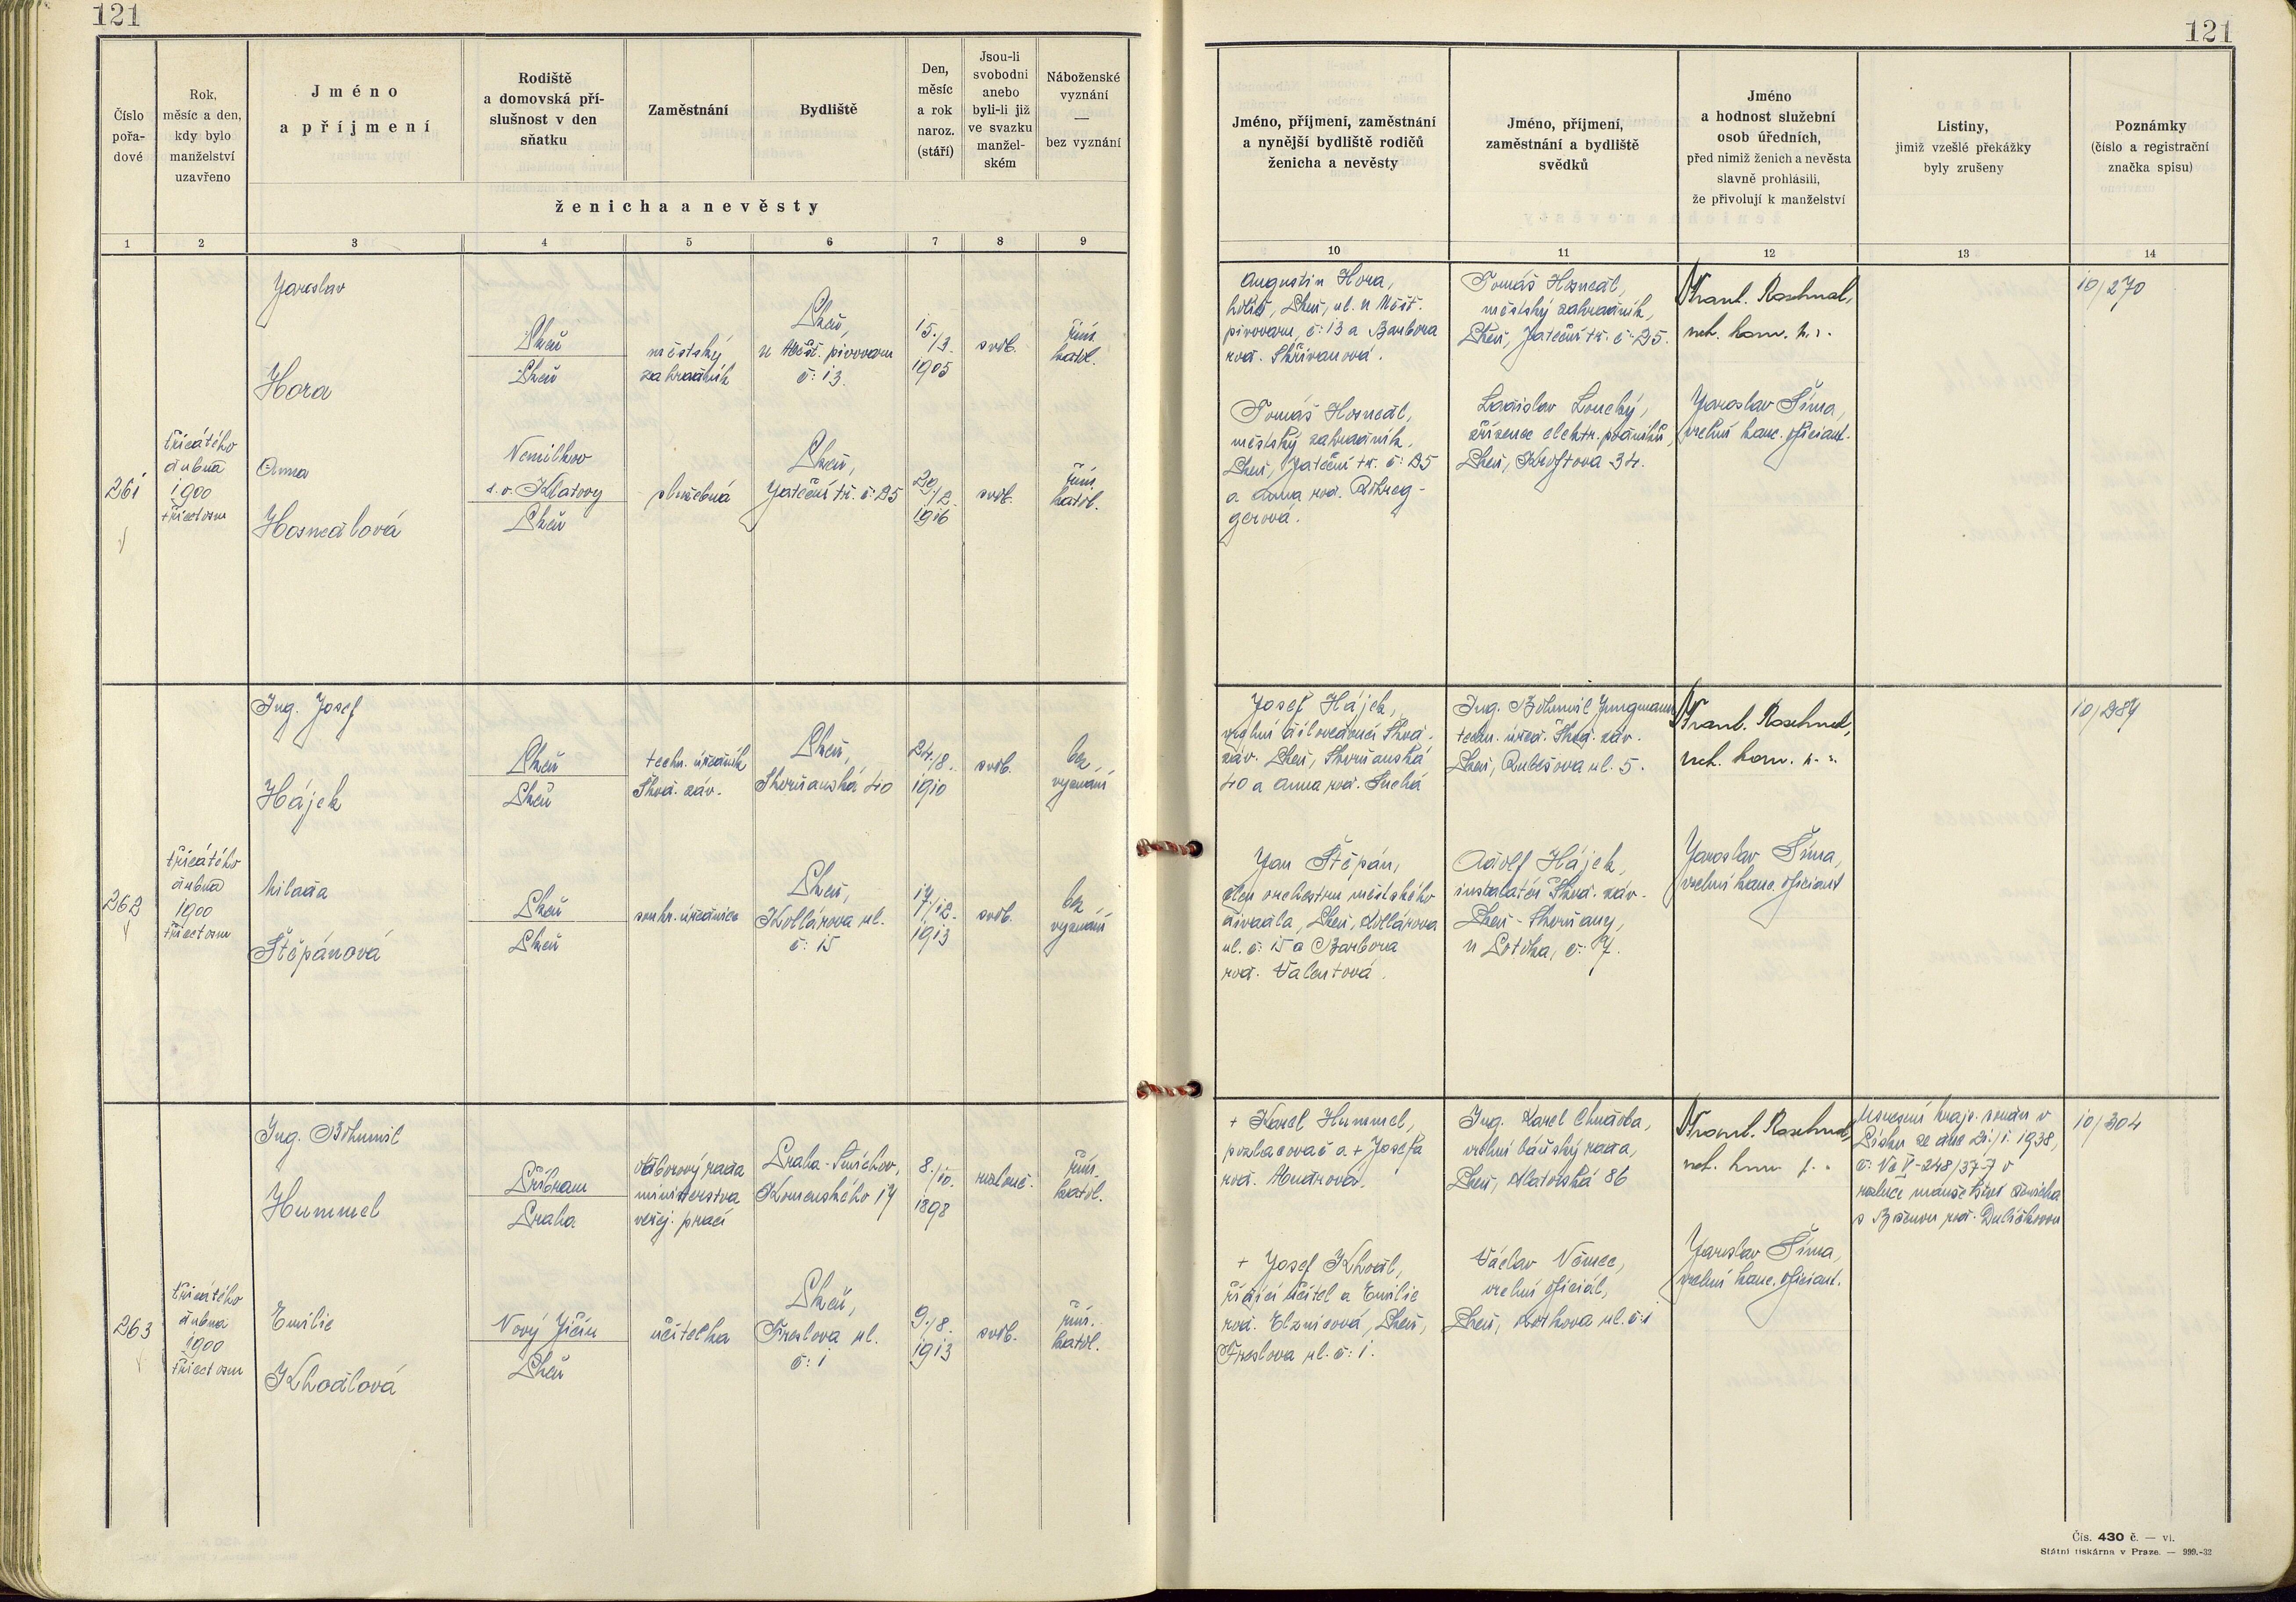 121
121
Číslo
pořa-
dové
Rok,
měsíc a den,
kdy bylo
manželství
uzavřeno
Jméno
a příjmení
Rodiště
a domovská pří-
slušnost v den
sňatku
Zaměstnání
Bydliště
Den,
měsíc
a rok
naroz.
(stáří)
Jsou-li
svobodni
anebo
byli-li již
ve svazku
manžel-
ském
Náboženské
vyznání
—
bez vyznání
ženicha a nevěsty
1 2 3 4 5 6 7 8 9
Jméno, příjmení, zaměstnání
a nynější bydliště rodičů
ženicha a nevěsty
Jméno, příjmení,
zaměstnání a bydliště
svědků
Jméno
a hodnost služební
osob úředních,
před nimiž ženich a nevěsta
slavně prohlásili,
že přivolují k manželství
Listiny,
jimiž vzešlé překážky
byly zrušeny
Poznámky
(číslo a registrační
značka spisu)
10 11 12 13 14
261
třicátého
dubna
1900
třicetosm
Jaroslav
Hora
Plzeň
Plzeň
městský
zahradník
Plzeň,
u Měšť. pivovaru
č: 13.
15./3.
1905
svob.
řím.
katol.
Anna
Hosnedlová
Nemilkov
s.o. Klatovy
Plzeň
služebná
Plzeň,
Jateční tř. č: 25
29./2.
1916
svob.
řím.
katol.
Augustin Hora,
Plzeň, ul. u Měšť.
pivovaru, č: 13 a Barbora
rod. Skřivanová.
Tomáš Hosnedl,
městský zahradník,
Plzeň, Jateční tř. č: 25
a Anna rod.
gerová.
Tomáš Hosnedl,
městský zahradník,
Plzeň, Jateční tř. č: 25.
Ladislav Loucký,
zřízenec elektr. podniků,
Plzeň, Kroftova 34.
Frant.
Jaroslav Šíma,
vrchní kanc. oficiant.
10/270
262
třicátého
dubna
1900
třicetosm
Ing. Josef
Hájek
Plzeň
Plzeň
techn. úředník
Škod. záv.
Plzeň,
Skvrňanská 40
24./8.
1910
svob.
bez
vyznání
Milada
Štěpánová
Plzeň
Plzeň
soukr. úřednice
Plzeň,
Kollárova ul.
č: 15
17./12.
1913
svob.
bez
vyznání
Josef Hájek,
vrchní účtovedoucí Škod.
záv. Plzeň, Skvrňanská
40 a Anna rod. Suchá
Jan Štěpán,
člen orchestru městského
divadla, Plzeň, Kollárova
ul. č: 15 a Barbora
rod. Valentová.
Ing. Bohumil Jungmann
techn. úřed. Škod. záv.
Plzeň, Rubešova ul. 5.
Adolf Hájek,
instalatér Škod. záv.
Plzeň - Skvrňany,
u Potoka, č: 7.
Frant.
Jaroslav Šíma,
vrchní kanc. oficiant
10/287
263
třicátého
dubna
1900
třicetosm
Ing. Bohumil
Hummel
Příbram
Praha
odborový rada
ministerstva
veřej. prací
Praha-Smíchov,
Komenského 17
8./10.
1898
rozlouč.
řím.
katol.
Emilie
Khodlová
Nový Jičín
Plzeň
učitelka
Plzeň,
Preslova ul.
č: 1
9./8.
1913
svob.
řím.
katol.
+ Karel Hummel,
pozlacovač a + Josefa
rod.
+ Josef Khodl,
řídící učitel a Emilie
rod. Elznicová, Plzeň,
Preslova ul. č: 1.
Ing. Karel Chudoba,
vrchní báňský rada,
Plzeň, Klatovská 86
Václav Němec,
vrchní oficiál,
Plzeň, ul. č: 1
Frant.
Jaroslav Šíma,
vrchní kanc. oficiant.
Usnesení kraj. soudu v
Písku ze dne 21./1. 1938,
rozluce manželství ženicha
s Boženou rod.
10/304
Čís. 430 č. — vi.
Státní tiskárna v Praze. — 999.-32